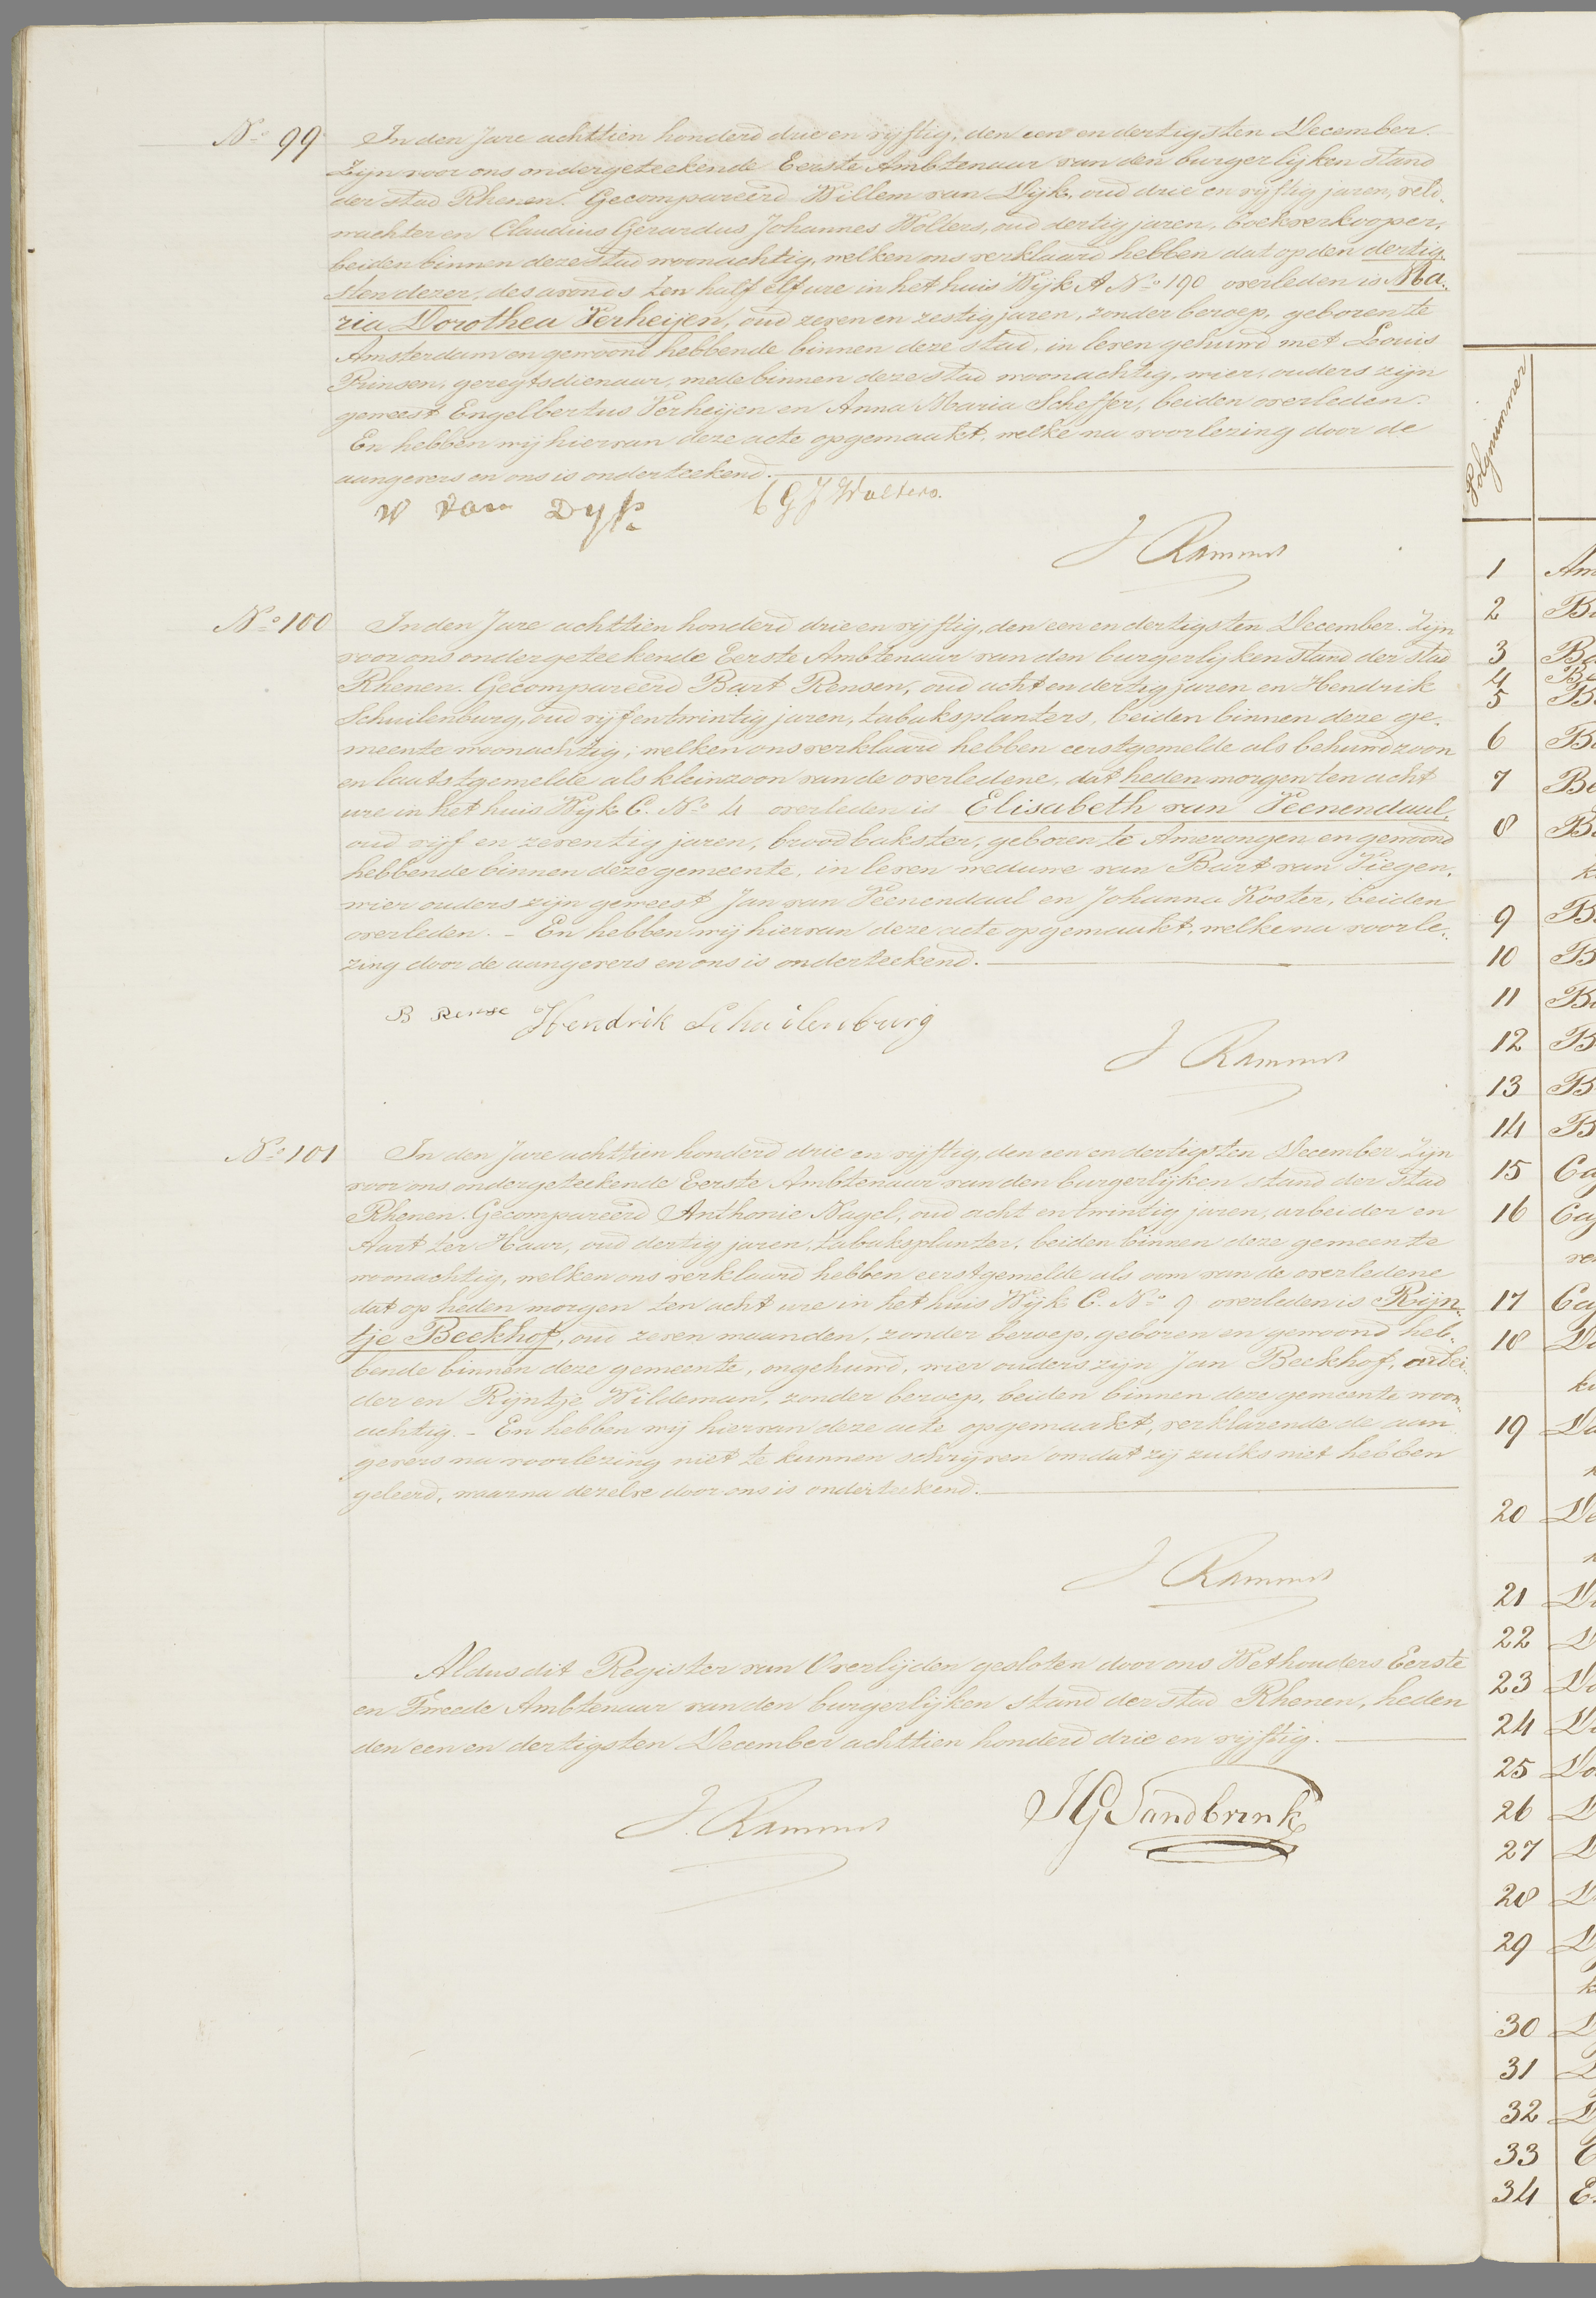 No 99
In den Jare achttien honderd drie en vijftig, den een en dertigsten December.
Zijn voor ons ondergeteekende Eerste Ambtenaar van den burgerlijken stand
der stad Rhenen. Gecompareerd Willem van Dijk, oud drie en vijftig jaren, veld-
wachter en Claudius Gerardus Johannes Wolters, oud dertig jaren, boekverkooper,
beiden binnen deze stad woonachtig, welken ons verklaard hebben dat op den dertig-
sten dezer, des avonds ten half elf ure in het huis Wijk A No 190 overleden is Ma-
ria Dorothea Verheijen, oud zeven en zestig jaren, zonder beroep, geboren te
Amsterdam en gewoond hebbende binnen deze stad, in leven gehuwd met Louis
Prinsen, geregtsdienaar, mede binnen deze stad woonachtig, wier ouders zijn
geweest Engelbertus Verheijen en Anna Maria Scheffer, beiden overleden.
En hebben wij hiervan deze acte opgemaakt, welke na voorlezing door de
aangevers en ons is onderteekend.
W van Dyk
C G J Wolters.
J Rammes
No 100
In den Jare achttien honderd drie en vijftig, den een en dertigsten December. Zijn
voor ons ondergeteekende Eerste Ambtenaar van den burgerlijken stand der stad
Rhenen. Gecompareerd Bart Rensen, oud acht en dertig jaren en Hendrik
Schuilenburg, oud vijf en twintig jaren, tabaksplanters, beiden binnen deze ge-
meente woonachtig, welken ons verklaard hebben eerstgemelde als behuwdzoon
en laatstgemelde als kleinzoon van de overledene, dat heden morgen ten acht
ure in het huis Wijk C. No 4 overleden is Elisabeth van Veenendaal,
oud vijf en zeventig jaren, broodbakster, geboren te Amerongen en gewoond
hebbende binnen deze gemeente, in leven weduwe van Bart van Viegen,
wier ouders zijn geweest Jan van Veenendaal en Johanna Koster, beiden
overleden. - En hebben wij hiervan deze acte opgemaakt, welke na voorle-
zing door de aangevers en ons is onderteekend.
B Rense
Hendrik Schuilenburg
J Rammes
No 101
In den Jare achttien honderd drie en vijftig, den een en dertigsten December Zijn
voor ons ondergeteekende Eerste Ambtenaar van den burgerlijken stand der stad
Rhenen. Gecompareerd Anthonie Nagel, oud acht en twintig jaren, arbeider en
Aart ter Haar, oud dertig jaren, tabaksplanter, beiden binnen deze gemeente
woonachtig, welken ons verklaard hebben eerstgemelde als oom van de overledene
dat op heden morgen ten acht ure in het huis Wijk C. No 9 overleden is Rijn-
tje Beekhof, oud zeven maanden, zonder beroep, geboren en gewoond heb-
bende binnen deze gemeente, ongehuwd, wier ouders zijn Jan Beekhof, arbei-
der en Rijntje Wildeman, zonder beroep, beiden binnen deze gemeente woon-
achtig. - En hebben wij hiervan deze acte opgemaakt, verklarende de aan-
gevers na voorlezing niet te kunnen schrijven omdat zij zulks niet hebben
geleerd, waarna dezelve door ons is onderteekend.
J Rammes
Aldus dit Register van Overlijden gesloten door ons Wethouders Eerste
en Tweede Ambtenaar van den burgerlijken stand der stad Rhenen, heden
den een en dertigsten December achttien honderd drie en vijftig.
J. Rammes
HG Sandbrink
Volgnummer
1
2
3
4
5
6
7
8
9
10
11
12
13
14
15
16
17
18
19
20
21
22
23
24
25
26
27
28
29
30
31
32
33
34